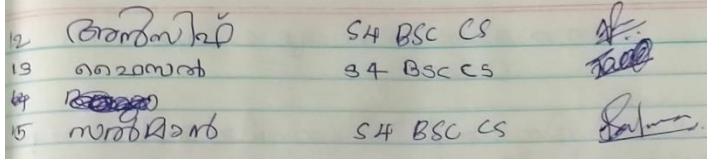 12 അൻസിഫ് S4 BSC CS
13 ഫൈസൽ S4 BSC CS
14
15 സൽമാൻ S4 BSC CS